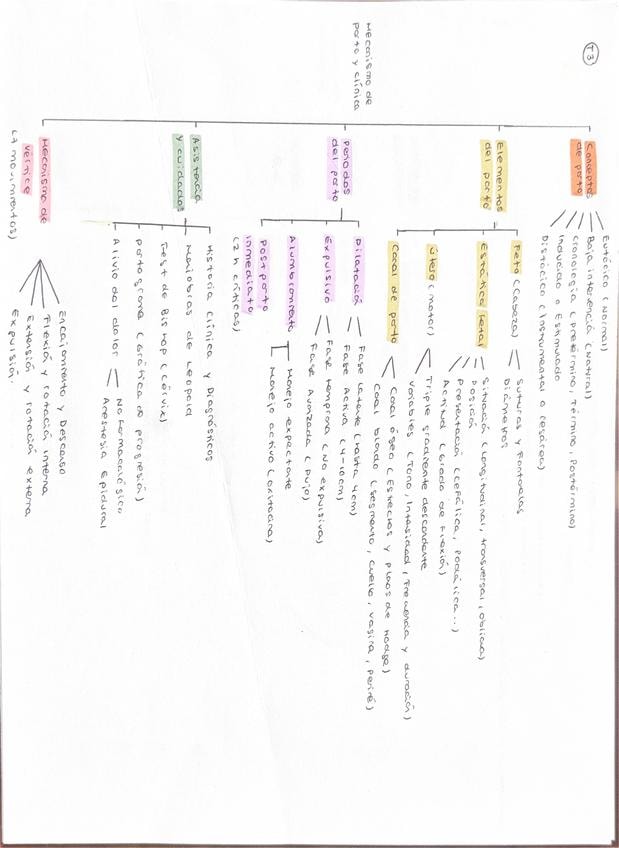 T3
Mecanismo de
parto y clínica
Conceptos
de parto
Eutócico (Normal)
Baja intervención (Natural)
Cronología (Pretérmino, Término, Postérmino)
Inducido o Estimulado
Distócico (Instrumental o cesárea)
Elementos
del parto
Feto (Cabeza)
Suturas y Fontanelas
Diámetros
Estática fetal
Situación (Longitudinal, transversal, oblicua)
Posición
Presentación (cefálica, Podálica...)
Actitud (Grado de Flexión)
Útero (motor)
Triple gradiente descendente
variables (Tono, Intensidad, Frecuencia y duración)
Canal de parto
Canal óseo (Estrechos y planos de Hodge)
Canal blando (segmento, cuello, vagina, periné)
Periodos
del parto
Dilatación
Fase Latente (Hasta 4cm)
Fase Activa (4-10cm)
Expulsivo
Fase temprana (No expulsiva)
Fase Avanzada (Pujo)
Alumbramiento
Manejo expectante
Manejo activo (oxitocina)
Postparto
inmediato
(2h críticas)
Asistencia
y cuidados
Historia clínica y Diagnósticos
Maniobras de Leopold
Test de Bishop (cérvix)
Partograma (Gráfica de progresión)
Alivio del dolor
No Farmacológico
Anestesia Epidural
Mecanismo de
vértice
(7 movimientos)
Encajamiento y Descenso
Flexión y rotación interna
Extensión y rotación externa
Expulsión.